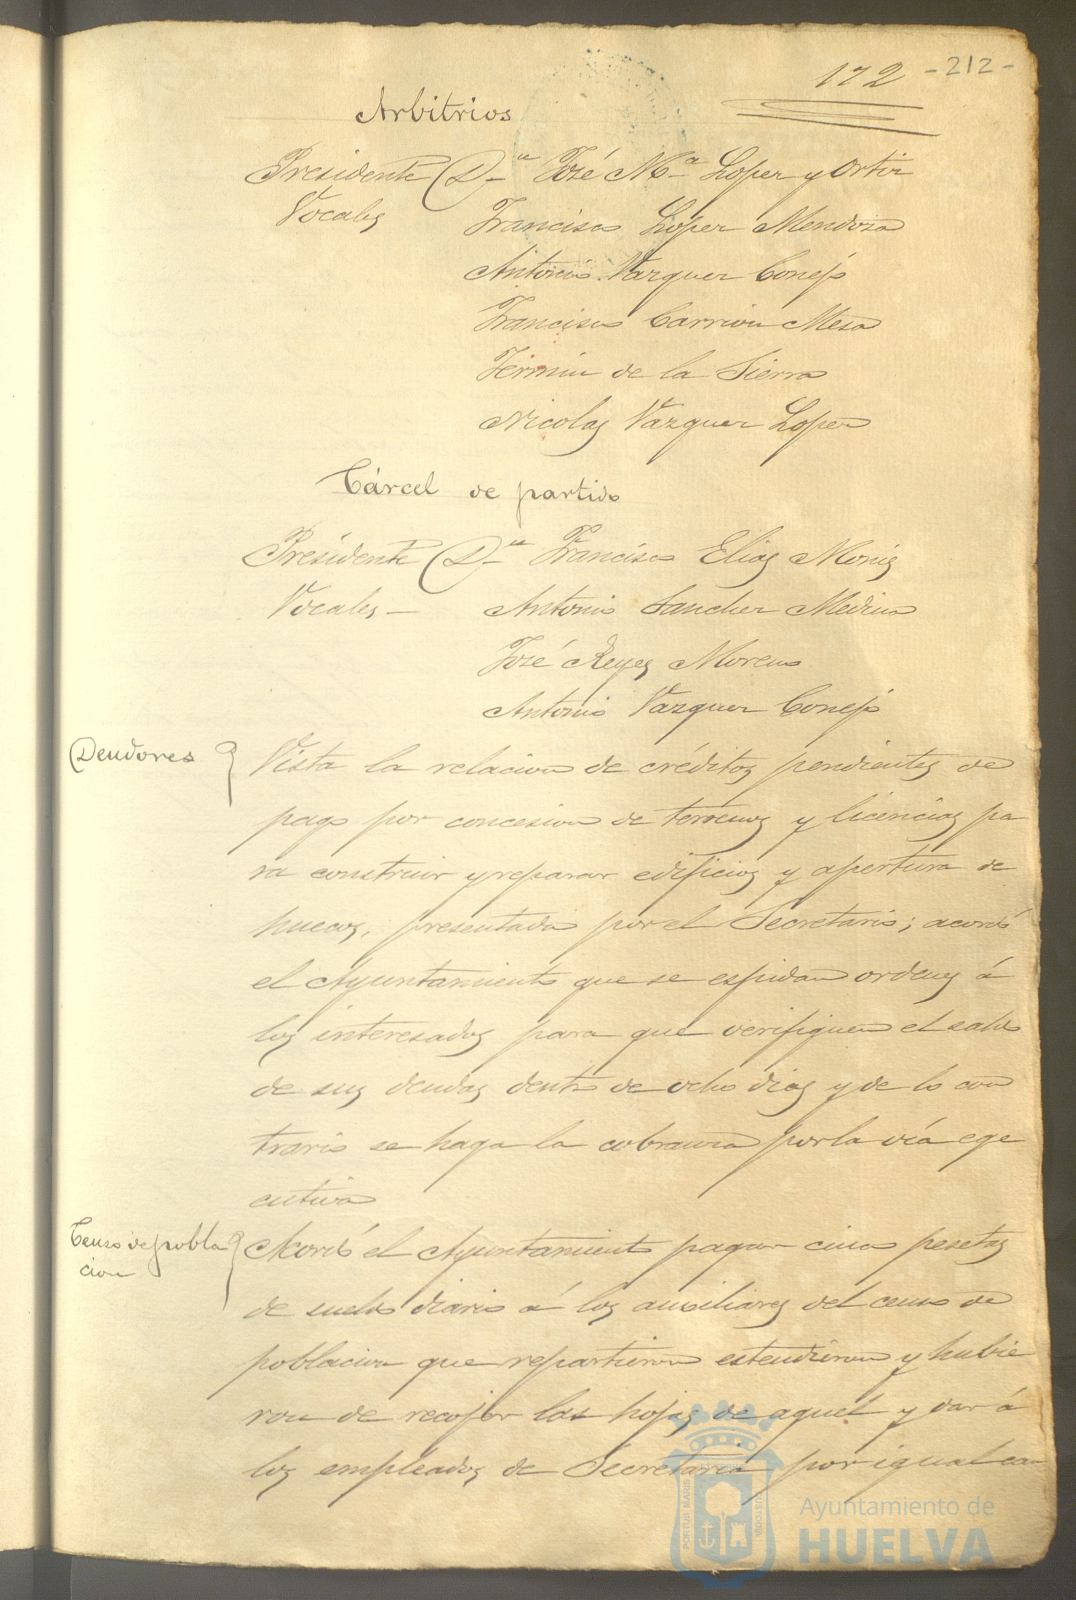 172 - 212 -
Arbitrios
Presidente D.n José M.a Lopez y Ortiz
Vocales Francisco Lopez Mendoza
Antonio Vazquez Conejo
Francisco Carrion Mesa
Fermin de la Sierra
Nicolas Vazquez Lopez
Cárcel de partido
Presidente D.n Francisco Elias Monis
Vocales - Antonio Sanchez Medina
José Reyes Moreno
Antonio Vazquez Conejo
Deudores Vista la relacion de créditos pendientes de
pago por concesion de terrenos y licencias pa
ra construir y reparar edificios y apertura de
huecos, presentada por el Secretario; acordó
el Ayuntamiento que se espidan ordenes á
los interesados para que verifiquen el saldo
de sus deudas dentro de ocho dias y de lo con
trario se haga la cobranza por la vía ege
cutiva
Censo de pobla
cion
Acordó el Ayuntamiento pagar cinco pesetas
de sueldo diario á los auxiliares del censo de
poblacion que repartieron estendieron y hubie
ron de recojer las hojas de aquel y dar á
los empleados de Secretaria por igual can
PORTUS MARIS
CUSTODIA
Ayuntamiento de
HUELVA